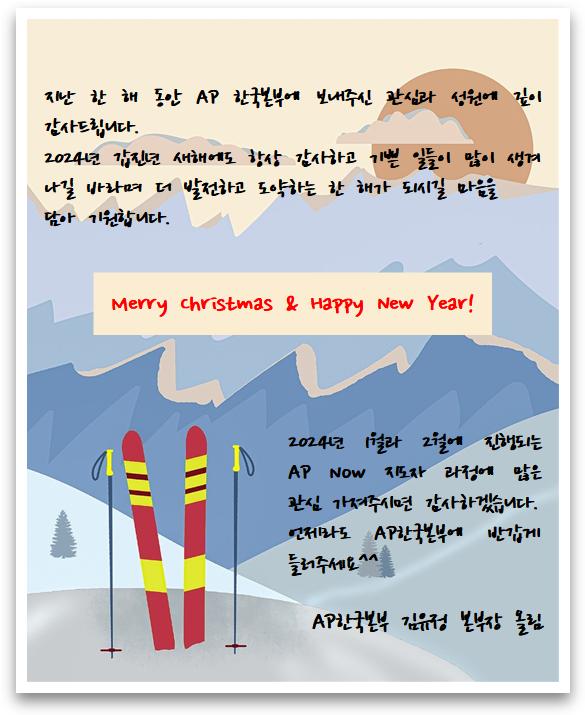 지난 한 해 동안 AP 한국본부에 보내주신 관심과 성원에 깊이
감사드립니다.
2024년 갑진년 새해에도 항상 감사하고 기쁜 일들이 많이 생겨
나길 바라며 더 발전하고 도약하는 한 해가 되시길 마음을
담아 기원합니다.
Merry Christmas & Happy New Year!
2024년 1월과 2월에 진행되는
AP Now 지도자 과정에 많은
관심 가져주시면 감사하겠습니다.
언제라도 AP한국본부에 반갑게
들러주세요^^
AP한국본부 김유정 본부장 올림